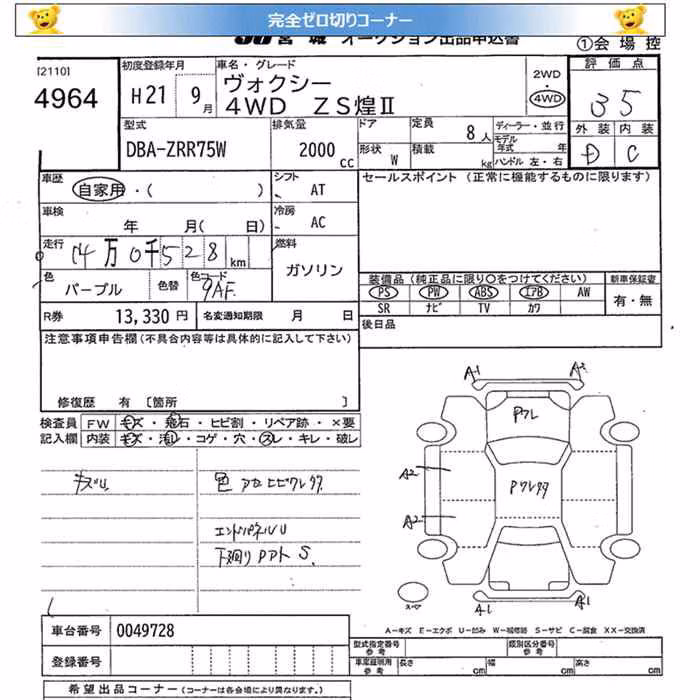 完全ゼロ切りコーナー
宮城 オークション出品申込書
①会場控
[2110]
4964
初度登録年月
H21 9月
車名・グレード
ヴォクシー
4WD ZS煌Ⅱ
2WD
4WD
評価点
35
型式
DBA-ZRR75W
排気量
2000cc
ドア
形状 W
定員 8人
積載 kg
ディーラー・並行
モデル年式 年
ハンドル 左・右
外装 内装
D C
車歴
自家用・( )
シフト
AT
セールスポイント (正常に機能するものに限ります)
車検
年 月( 日)
冷房
AC
走行
14万0千528km
燃料
ガソリン
色
パープル
色替
色コード
9AF
装備品(純正品に限り○をつけてください)
PS PW ABS エアB AW
SR ナビ TV カワ
新車保証書
有・無
R券 13,330円
名変通知期限 月 日
後日品
注意事項申告欄(不具合内容等は具体的に記入して下さい)
修復歴 有 [箇所 ]
検査員記入欄
FW キズ・飛石・ヒビ割・リペア跡・×要
内装 キズ・汚レ・コゲ・穴・スレ・キレ・破レ
キズU
エンドパネルU
下廻りPアトS
A1
PフレA2
A2
A1
A1
スペア
A-キズ E-エクボ U-凹み W-補修跡 S-サビ C-腐食 XX-交換済
車台番号 0049728
登録番号
型式指定番号 参考
類別区分番号 参考
車庫証明用 参考
長さ cm
幅 cm
高さ cm
希望出品コーナー(コーナーは各会場により異なります。)